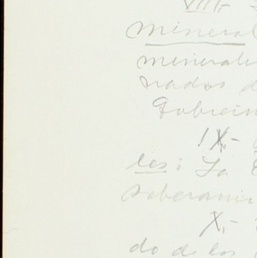 VIII.-
Mineral
minerale
nados d
Gobiern
IX.-
les: La
soberanía
X.-
do de los